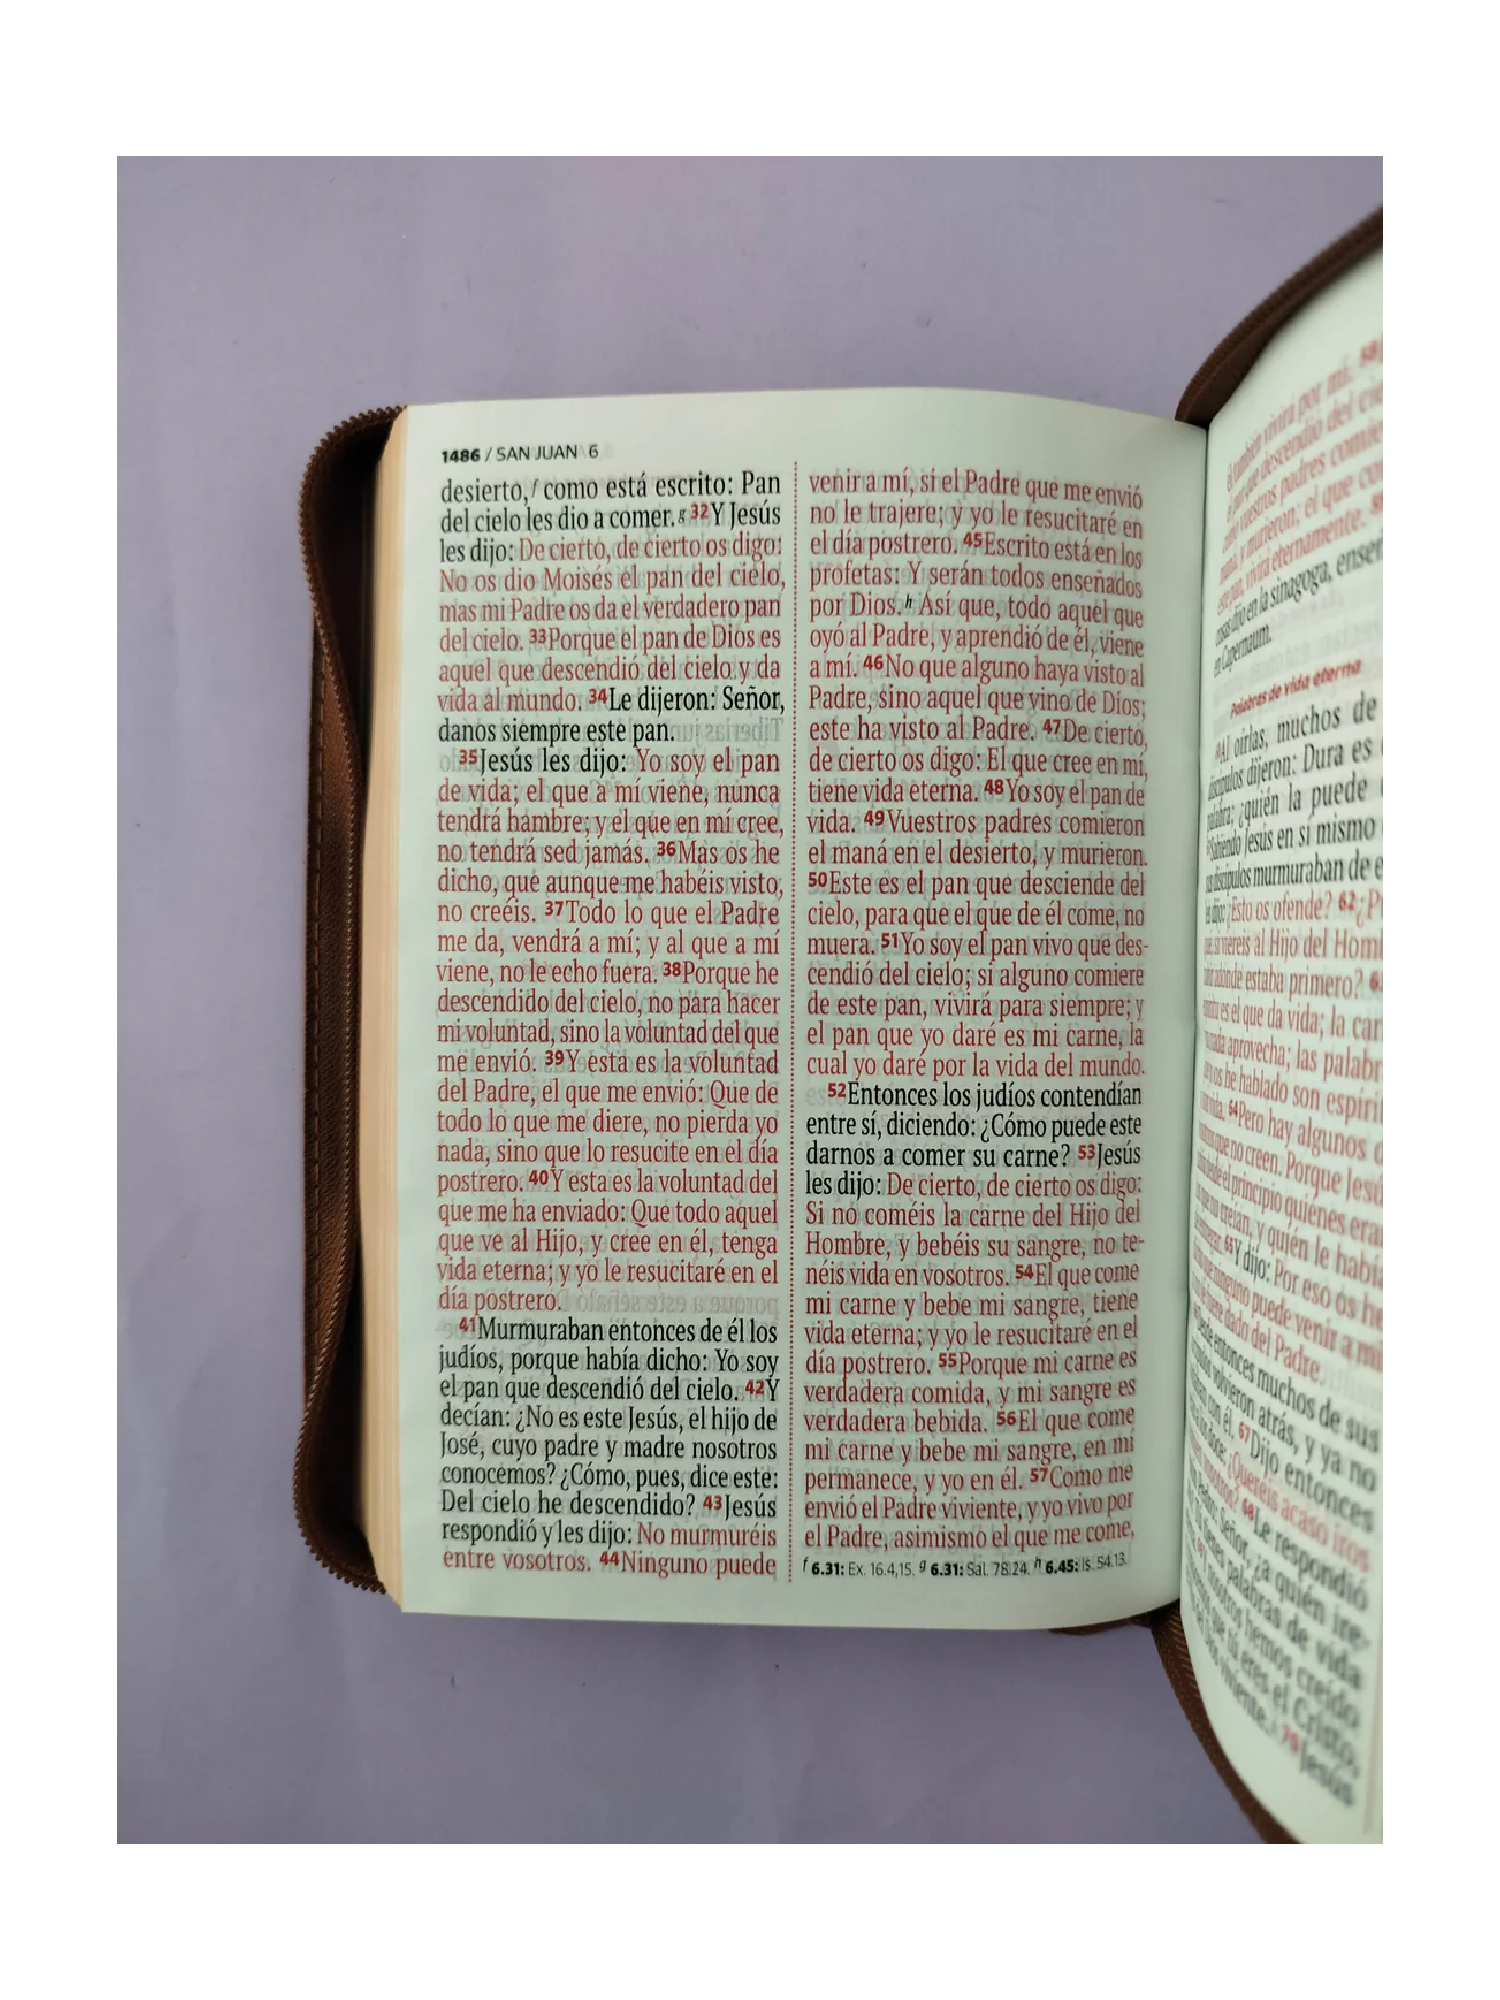 1486 / SAN JUAN 6
desierto,f como está escrito: Pan
del cielo les dio a comer.g 32Y Jesús
les dijo: De cierto, de cierto os digo:
No os dio Moisés el pan del cielo,
mas mi Padre os da el verdadero pan
del cielo. 33Porque el pan de Dios es
aquel que descendió del cielo y da
vida al mundo. 34Le dijeron: Señor,
danos siempre este pan.
35Jesús les dijo: Yo soy el pan
de vida; el que a mí viene, nunca
tendrá hambre; y el que en mí cree,
no tendrá sed jamás. 36Mas os he
dicho, que aunque me habéis visto,
no creéis. 37Todo lo que el Padre
me da, vendrá a mí; y al que a mí
viene, no le echo fuera. 38Porque he
descendido del cielo, no para hacer
mi voluntad, sino la voluntad del que
me envió. 39Y esta es la voluntad
del Padre, el que me envió: Que de
todo lo que me diere, no pierda yo
nada, sino que lo resucite en el día
postrero. 40Y esta es la voluntad del
que me ha enviado: Que todo aquel
que ve al Hijo, y cree en él, tenga
vida eterna; y yo le resucitaré en el
día postrero.
41Murmuraban entonces de él los
judíos, porque había dicho: Yo soy
el pan que descendió del cielo. 42Y
decían: ¿No es este Jesús, el hijo de
José, cuyo padre y madre nosotros
conocemos? ¿Cómo, pues, dice este:
Del cielo he descendido? 43Jesús
respondió y les dijo: No murmuréis
entre vosotros. 44Ninguno puede
venir a mí, si el Padre que me envió
no le trajere; y yo le resucitaré en
el día postrero. 45Escrito está en los
profetas: Y serán todos enseñados
por Dios.h Así que, todo aquel que
oyó al Padre, y aprendió de él, viene
a mí. 46No que alguno haya visto al
Padre, sino aquel que vino de Dios;
este ha visto al Padre. 47De cierto,
de cierto os digo: El que cree en mí,
tiene vida eterna. 48Yo soy el pan de
vida. 49Vuestros padres comieron
el maná en el desierto, y murieron.
50Este es el pan que desciende del
cielo, para que el que de él come, no
muera. 51Yo soy el pan vivo que des-
cendió del cielo; si alguno comiere
de este pan, vivirá para siempre; y
el pan que yo daré es mi carne, la
cual yo daré por la vida del mundo.
52Entonces los judíos contendían
entre sí, diciendo: ¿Cómo puede este
darnos a comer su carne? 53Jesús
les dijo: De cierto, de cierto os digo:
Si no coméis la carne del Hijo del
Hombre, y bebéis su sangre, no te-
néis vida en vosotros. 54El que come
mi carne y bebe mi sangre, tiene
vida eterna; y yo le resucitaré en el
día postrero. 55Porque mi carne es
verdadera comida, y mi sangre es
verdadera bebida. 56El que come
mi carne y bebe mi sangre, en mí
permanece, y yo en él. 57Como me
envió el Padre viviente, y yo vivo por
el Padre, asimismo el que me come,
f 6.31: Ex. 16.4,15. g 6.31: Sal. 78.24. h 6.45: Is. 54.13.
él también vivirá por mí. 58
que descendió del
vuestros padres
y murieron; el que
este pan, vivirá eternamente.
cosas dijo en la sinagoga,
en Capernaum.
Palabras de vida eterna
Al oírlas, muchos de
discípulos dijeron: Dura es
palabra; ¿quién la puede
Jesús en sí mismo
discípulos murmuraban de
dijo: ¿Esto os ofende? 62
si viereis al Hijo del
adonde estaba primero?
es el que da vida; la
nada aprovecha; las
os he hablado son
vida. 64Pero hay algunos
que no creen. Porque
desde el principio quiénes
creían, y quién le
65Y dijo: Por eso os
que ninguno puede venir a
dado del Padre.
entonces muchos de sus
volvieron atrás, y ya no
con él. 67Dijo entonces
doce: ¿Queréis acaso iros
68Le respondió
Señor, ¿a quién
palabras de vida
nosotros hemos creído
que tú eres el Cristo,
viviente. 70Jesús